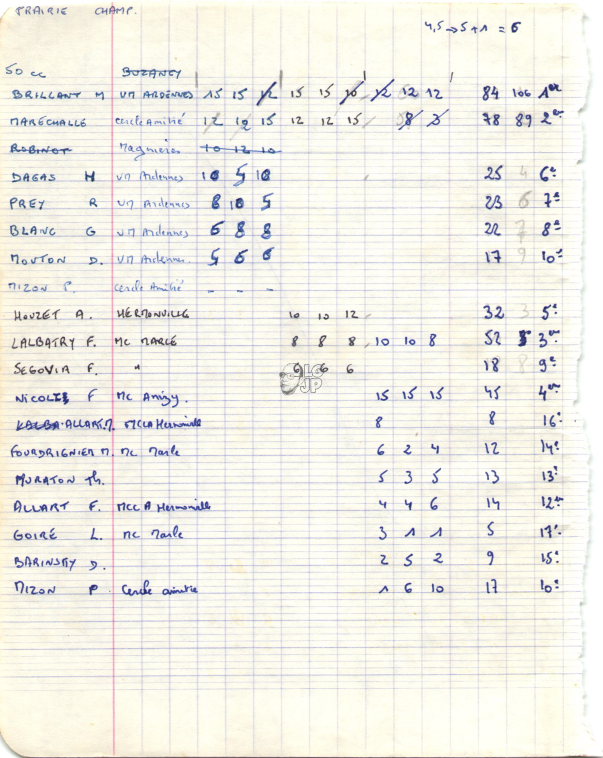 PRAIRIE CHAMP.
4,5 → 5 + 1 = 6
50 cc BUZANCY
BRILLANT M UM ARDENNES 15 15 12 15 15 10 12 12 12 84 106 1er
MARECHALLE Cercle Amitié 12 12 15 12 12 15 8 3 78 89 2e
ROBINOT Magnieres 10 12 10
DAGAS H UM Ardennes 10 5 10 25 4 6e
PREY R UM Ardennes 8 10 5 23 6 7e
BLANC G UM Ardennes 6 8 8 22 7 8e
MOUTON D. UM Ardennes. 5 6 6 17 9 10e
MIZON P. Cercle Amitié - - -
HOUZET A. HERMONVILLE 10 10 12 32 3 5e
LALBATRY F. MC MARLE 8 8 8 10 10 8 52 3e
SEGOVIA F. " 6 6 6 18 8 9e
LGJP
NICOLI F MC Anizy. 15 15 15 45 4e
ALLART.M. MCLA Hermonville 8 8 16e
FOURDRIGNIER M. MC Marle 6 2 4 12 14e
MURATON Th. 5 3 5 13 13e
ALLART F. MCLA Hermonville 4 4 6 14 12e
GOIRÉ L. MC Marle 3 1 1 5 17e
BARINSKY D. 2 5 2 9 15e
MIZON P Cercle amitie 1 6 10 17 10e